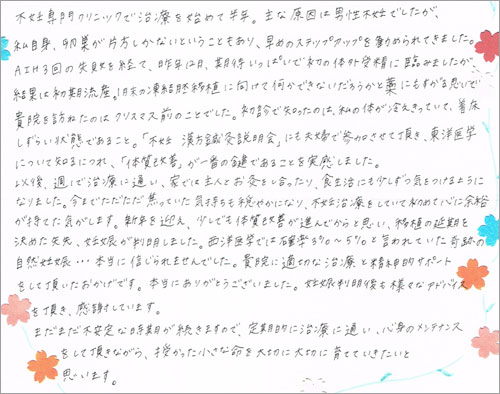 不妊専門クリニックで治療を始めて半年。主な原因は男性不妊でしたが、
私自身、卵巣が片方しかないということもあり、早めのステップアップを勧められてきました。
AIH3回の失敗を経て、昨年12月、期待いっぱいで初の体外受精に臨みましたが、
結果は初期流産。1月末の凍結胚移植に向けて何かできないだろうかと藁にもすがる思いで
貴院を訪ねたのはクリスマス前のことでした。初診で知ったのは、私の体が冷えきっていて、着床
しずらい状態であること。「不妊 漢方鍼灸説明会」にも夫婦で参加させて頂き、東洋医学
について知るにつれ、「体質改善」が一番の鍵であることを実感しました。
以後、週1で治療に通い、家では主人とお灸をし合ったり、食生活にも少しずつ気をつけるように
なりました。今までただただ焦っていた気持ちも穏やかになり、不妊治療をしていて初めて心に余裕
が持てた気がします。新年を迎え、少しでも体質改善が進んでからと思い、移植の延期を
決めた矢先、妊娠が判明しました。西洋医学では確率3%〜5%と言われていた奇跡の
自然妊娠…本当に信じられませんでした。貴院に適切な治療と精神的サポート
をして頂いたおかげです。本当にありがとうございました。妊娠判明後も様々なアドバイス
を頂き、感謝しています。
まだまだ不安定な時期が続きますので、定期的に治療に通い、心身のメンテナンス
をして頂きながら、授かった小さな命を大切に大切に育てていきたいと
思います。